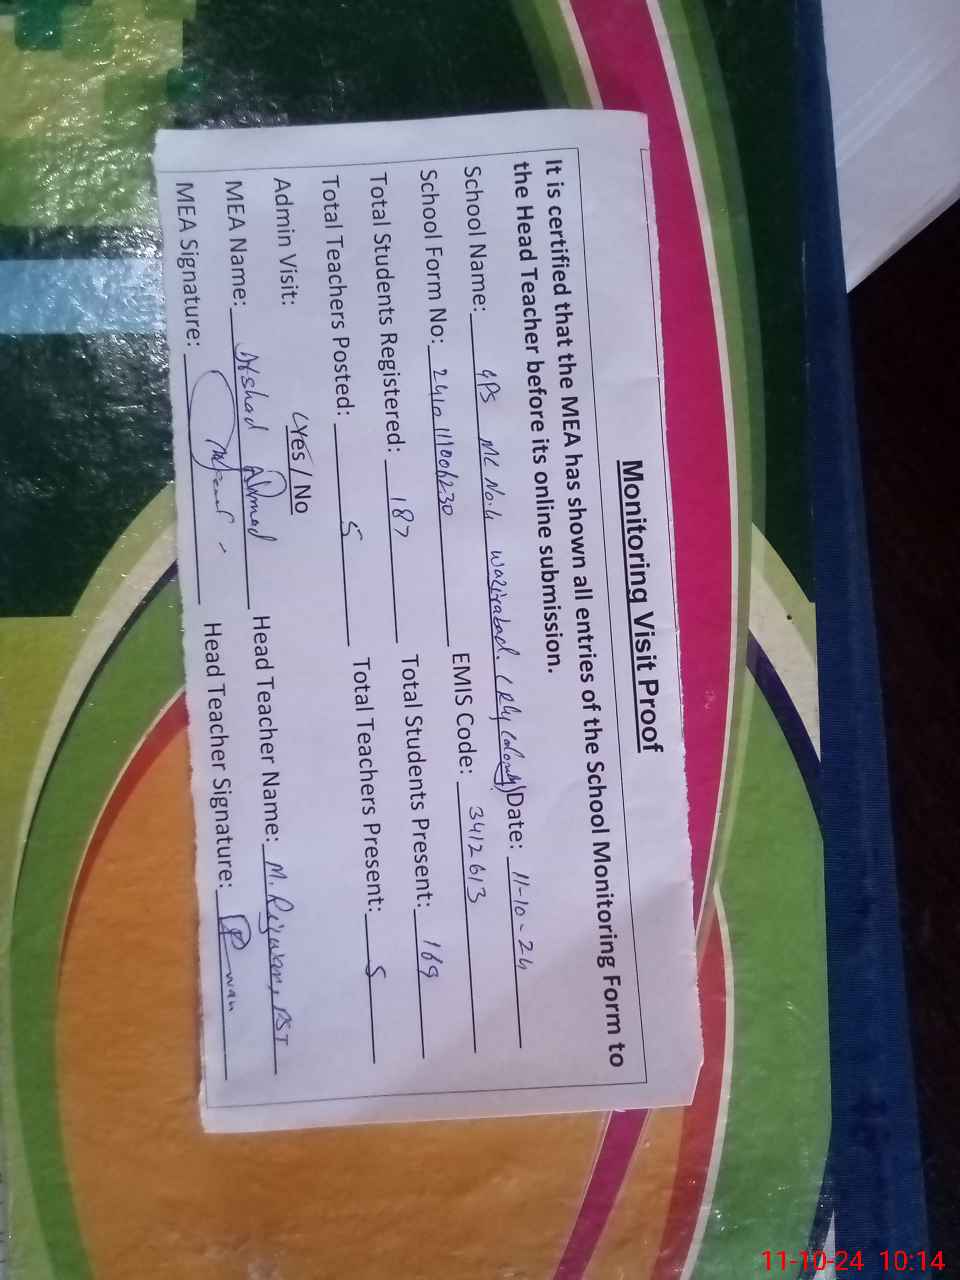 Monitoring Visit Proof
It is certified that the MEA has shown all entries of the School Monitoring Form to
the Head Teacher before its online submission.
School Name: GPS MC No.4 Wazirabad. (Rly Colony) Date: 11-10-24
School Form No: EMIS Code: 3412613
Total Students Registered: 187 Total Students Present: 169
Total Teachers Posted: 5 Total Teachers Present: 5
Admin Visit: Yes / No
MEA Name: Arshad Ahmad Head Teacher Name: M. Rizwan, PST
MEA Signature: Head Teacher Signature:
11-10-24 10:14